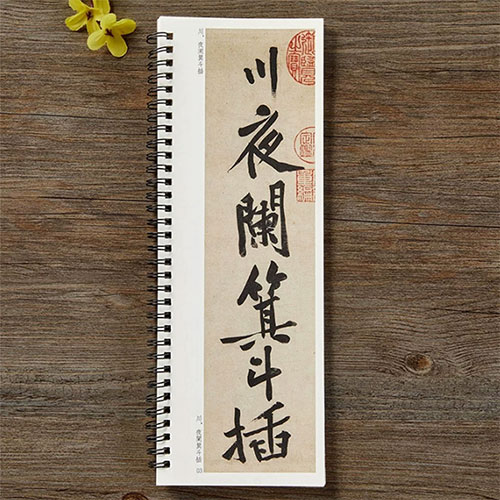 川夜闌箕斗插
川、夜阑箕斗插
川、夜阑箕斗插